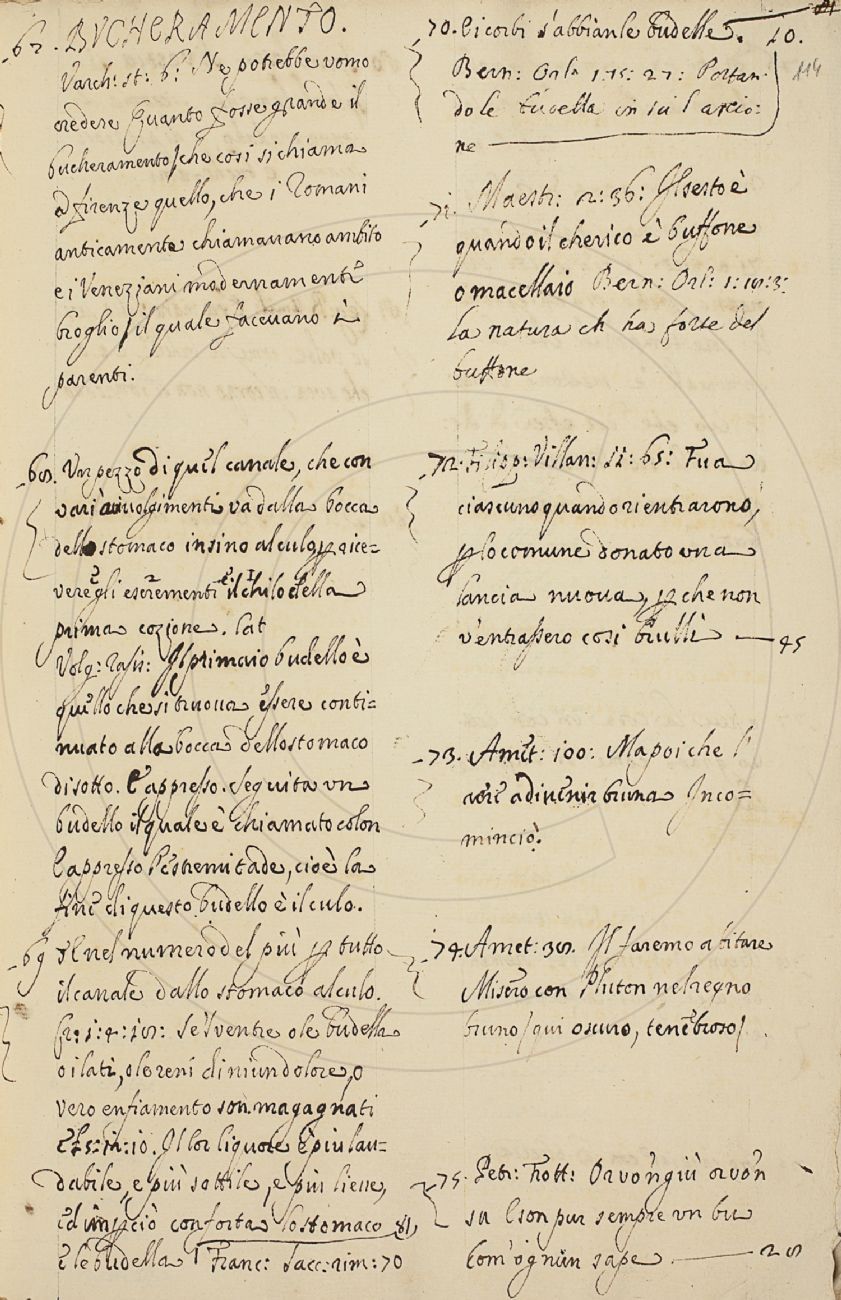 -67. BUCHERAMENTO.
Varch: st: 6: Ne potrebbe vomo
credere quanto fosse grande il
bucheramento/che cosi si chiama
a firenze quello, che i Romani
anticamente chiamavano ambito
e i Veneziani modernamente
broglio/il quale facevano i
parenti.
-68. Un pezzo di quel canale, che con
varii avvolgimenti va dalla bocca
dello stomaco insino al culo, p rice=
vere gli escrementi e il chilo della
prima cozione. Lat
Volg: Rasis: Il primaio budello è
quello che si truova essere conti=
nuato alla bocca dello stomaco
disotto. E appresso. Seguita un
budello il quale è chiamato colon
E appresso l'estremitade, cioè la
fine di questo budello è il culo.
-69 E nel numero del più p tutto
il canale dallo stomaco al culo.
Cr: 1: 4: 18: Se'l ventre o le budella
o i lati, o le reni di niun dolore, o
vero enfiamento son magagnati
E 5: 12: 10. Il lor liquore è più lau=
dabile, e più sottile, e più lieve,
ed imperciò conforta lo stomaco
e le budella Franc: Sacc: rim: 70
-70. E i corbi s'abbian le budelle. 10.
Bern: Orl. 1: 15: 27: Portan
dole budella in su l'arcio:
ne
114
-71. Maestr: 2: 36: Il sesto è
quando il cherico è buffone
o macellaio Bern: Orl: 1: 18: 3:
La natura ch ha forte del
buffone
-72. Filip: Villan: 11: 65: Fu a
ciascuno quando rientrarono,
p lo comune donato una
lancia nuova, p che non
v'entrassero cosi brulli 45
-73. Amet: 100: Ma poi che l'
aere a divenir bruna Inco=
minciò.
-74. Amet: 38. Il faremo abitare
Misero con Pluton nel regno
bruno/qui oscuro, tenebroso/
-75. Petr: Frott: Or von giù or von
su E son pur sempre un bu
Com' ognun sape 28